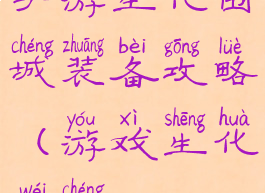 游生化围
chéng zhuāng bèi gōng lüè
城装备攻略
yóu xì shēng huà
（游戏生化
wéi chéng